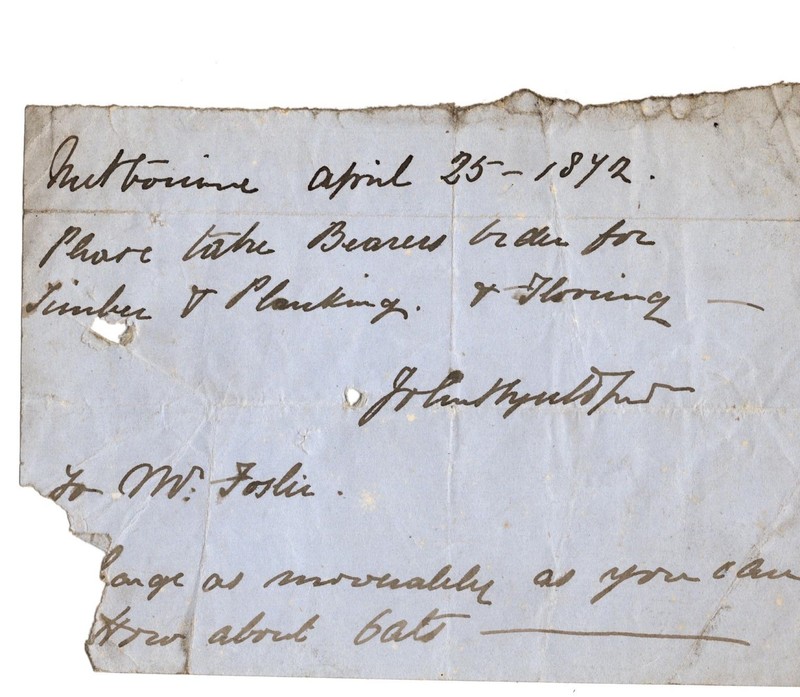 Melbourne april 25 - 1872.
Please take Bearers order for
Timber & Planking. & Flooring —
John
To Mr. Foslie.
large as as you can
How about Oats —